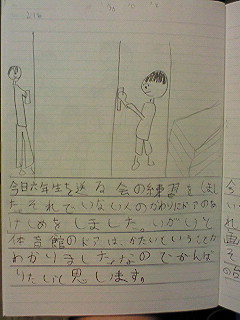 今日六年生を送る会の練習をしまし
た。それでいない人のかわりにドアのあ
けしめをしました。いがいと
体育館のドアは、かたいということが
わかりました。なのでがんば
りたいと思します。